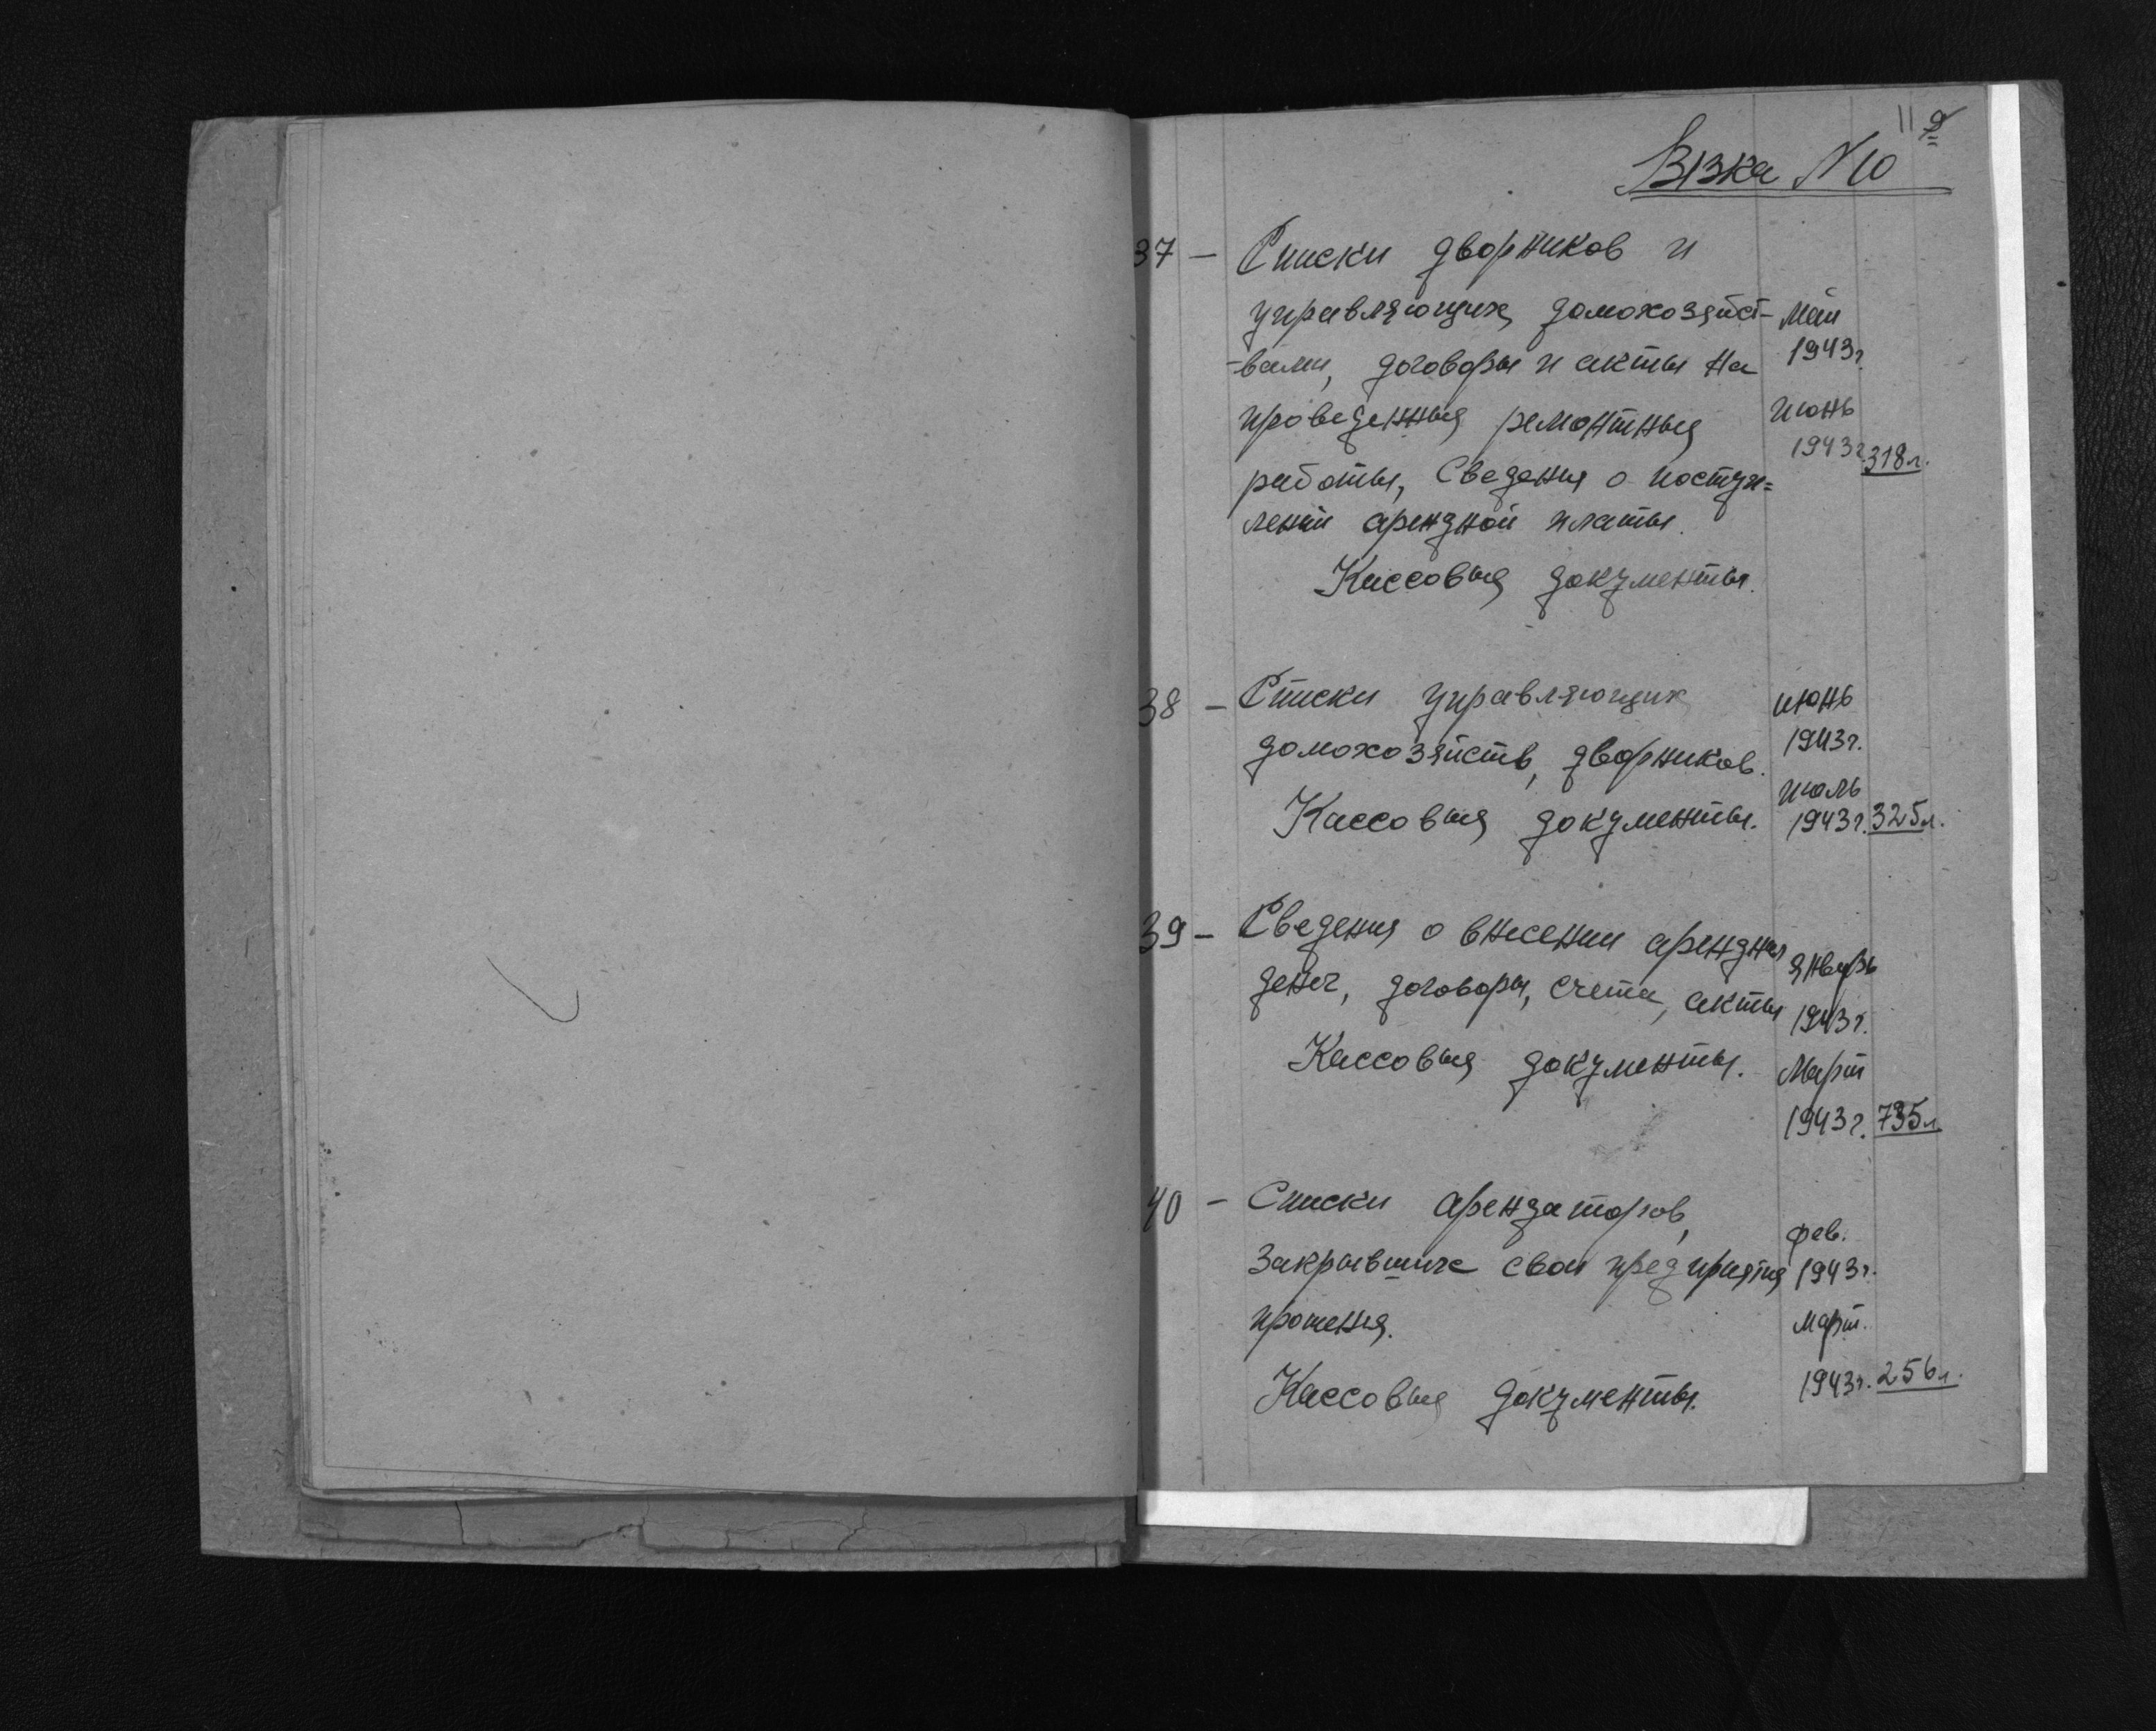 11 9
Вязка N 10
37 – Списки дворников и
управляющих домохозяйст- май
-вами, договоры и акты на 1943г.
проведенныя ремонтныя июнь
1943г. 318л.
работы, Сведения о поступ=
лении арендной платы.
Кассовыя документы.
38 – Списки управляющих июнь
домохозяйств, дворников. 1943г.
июль
Кассовыя документы. 1943г. 325л.
39 – Сведения о внесении арендных январь
денег, договоры, счета, акты 1943г.
Кассовыя документы. Март
1943г. 735л.
40 – Списки арендаторов, фев.
закрывших свои предприятия 1943г.
прошения. март.
Кассовыя документы. 1943г. 256л.